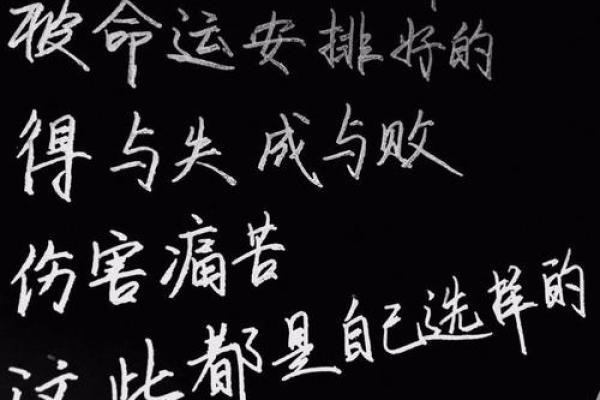 被命运安排好的
得与失成与败
伤害痛苦
这些都是自己选择的